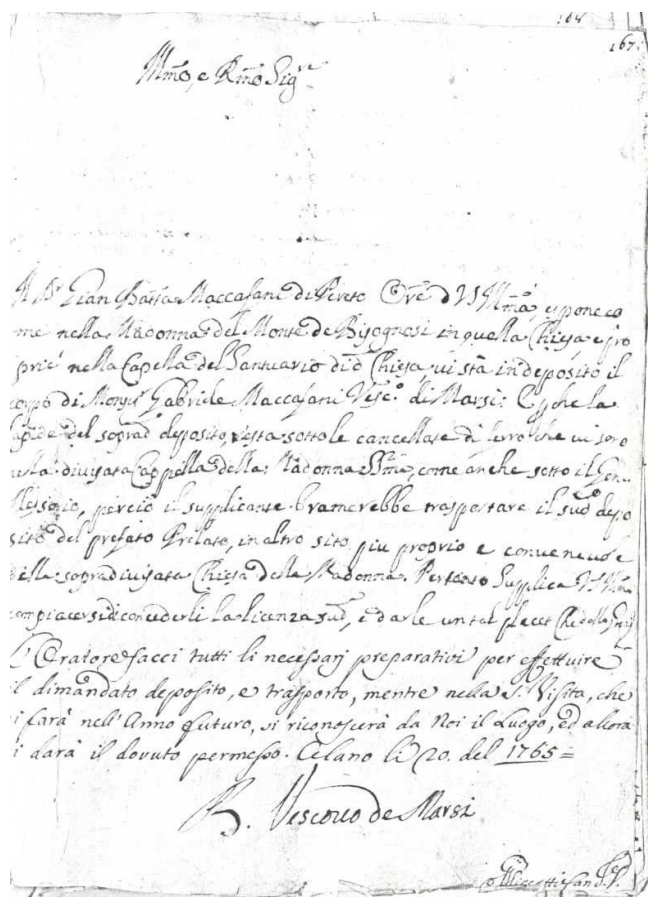 167
Illmo, e Rmo Sigre
Il Dr Gian Batta Maccafani di Pereto Ore d VS Illma, espone co
me nella Madonna del Monte de Bisognosi in quella Chiesa, e pro
prie nella Capella del Santuario di d Chiesa, vi stà in deposito il
corpo di Monsr Gabriele Maccafani Vesco di Marsi: E perche la
lapide del soprado deposito resta sotto le cancellate di ferro che vi sono
nella divisata Cappella della Madonna SSma, come anche sotto il Genu
flessorio, perciò il supplicante bramerebbe trasportare il sudo depo
sito del prefato Prelato, in altro sito piu proprio e convenevole
della sopradivisata Chiesa della Madonna. Pertanto Supplica VS Illma
compiacersi di concederli la licenza sud, e darle un tal placet Che della
L'Oratore facci tutti li necessarj preparativi per effettuire
il dimandato deposito, e trasporto, mentre nella S. Visita, che
si farà nell'Anno futuro, si riconoscerà da Noi il Luogo, ed allora
si darà il dovuto permesso. Celano li 20. del 1765 =
B. Vescovo de Marsi